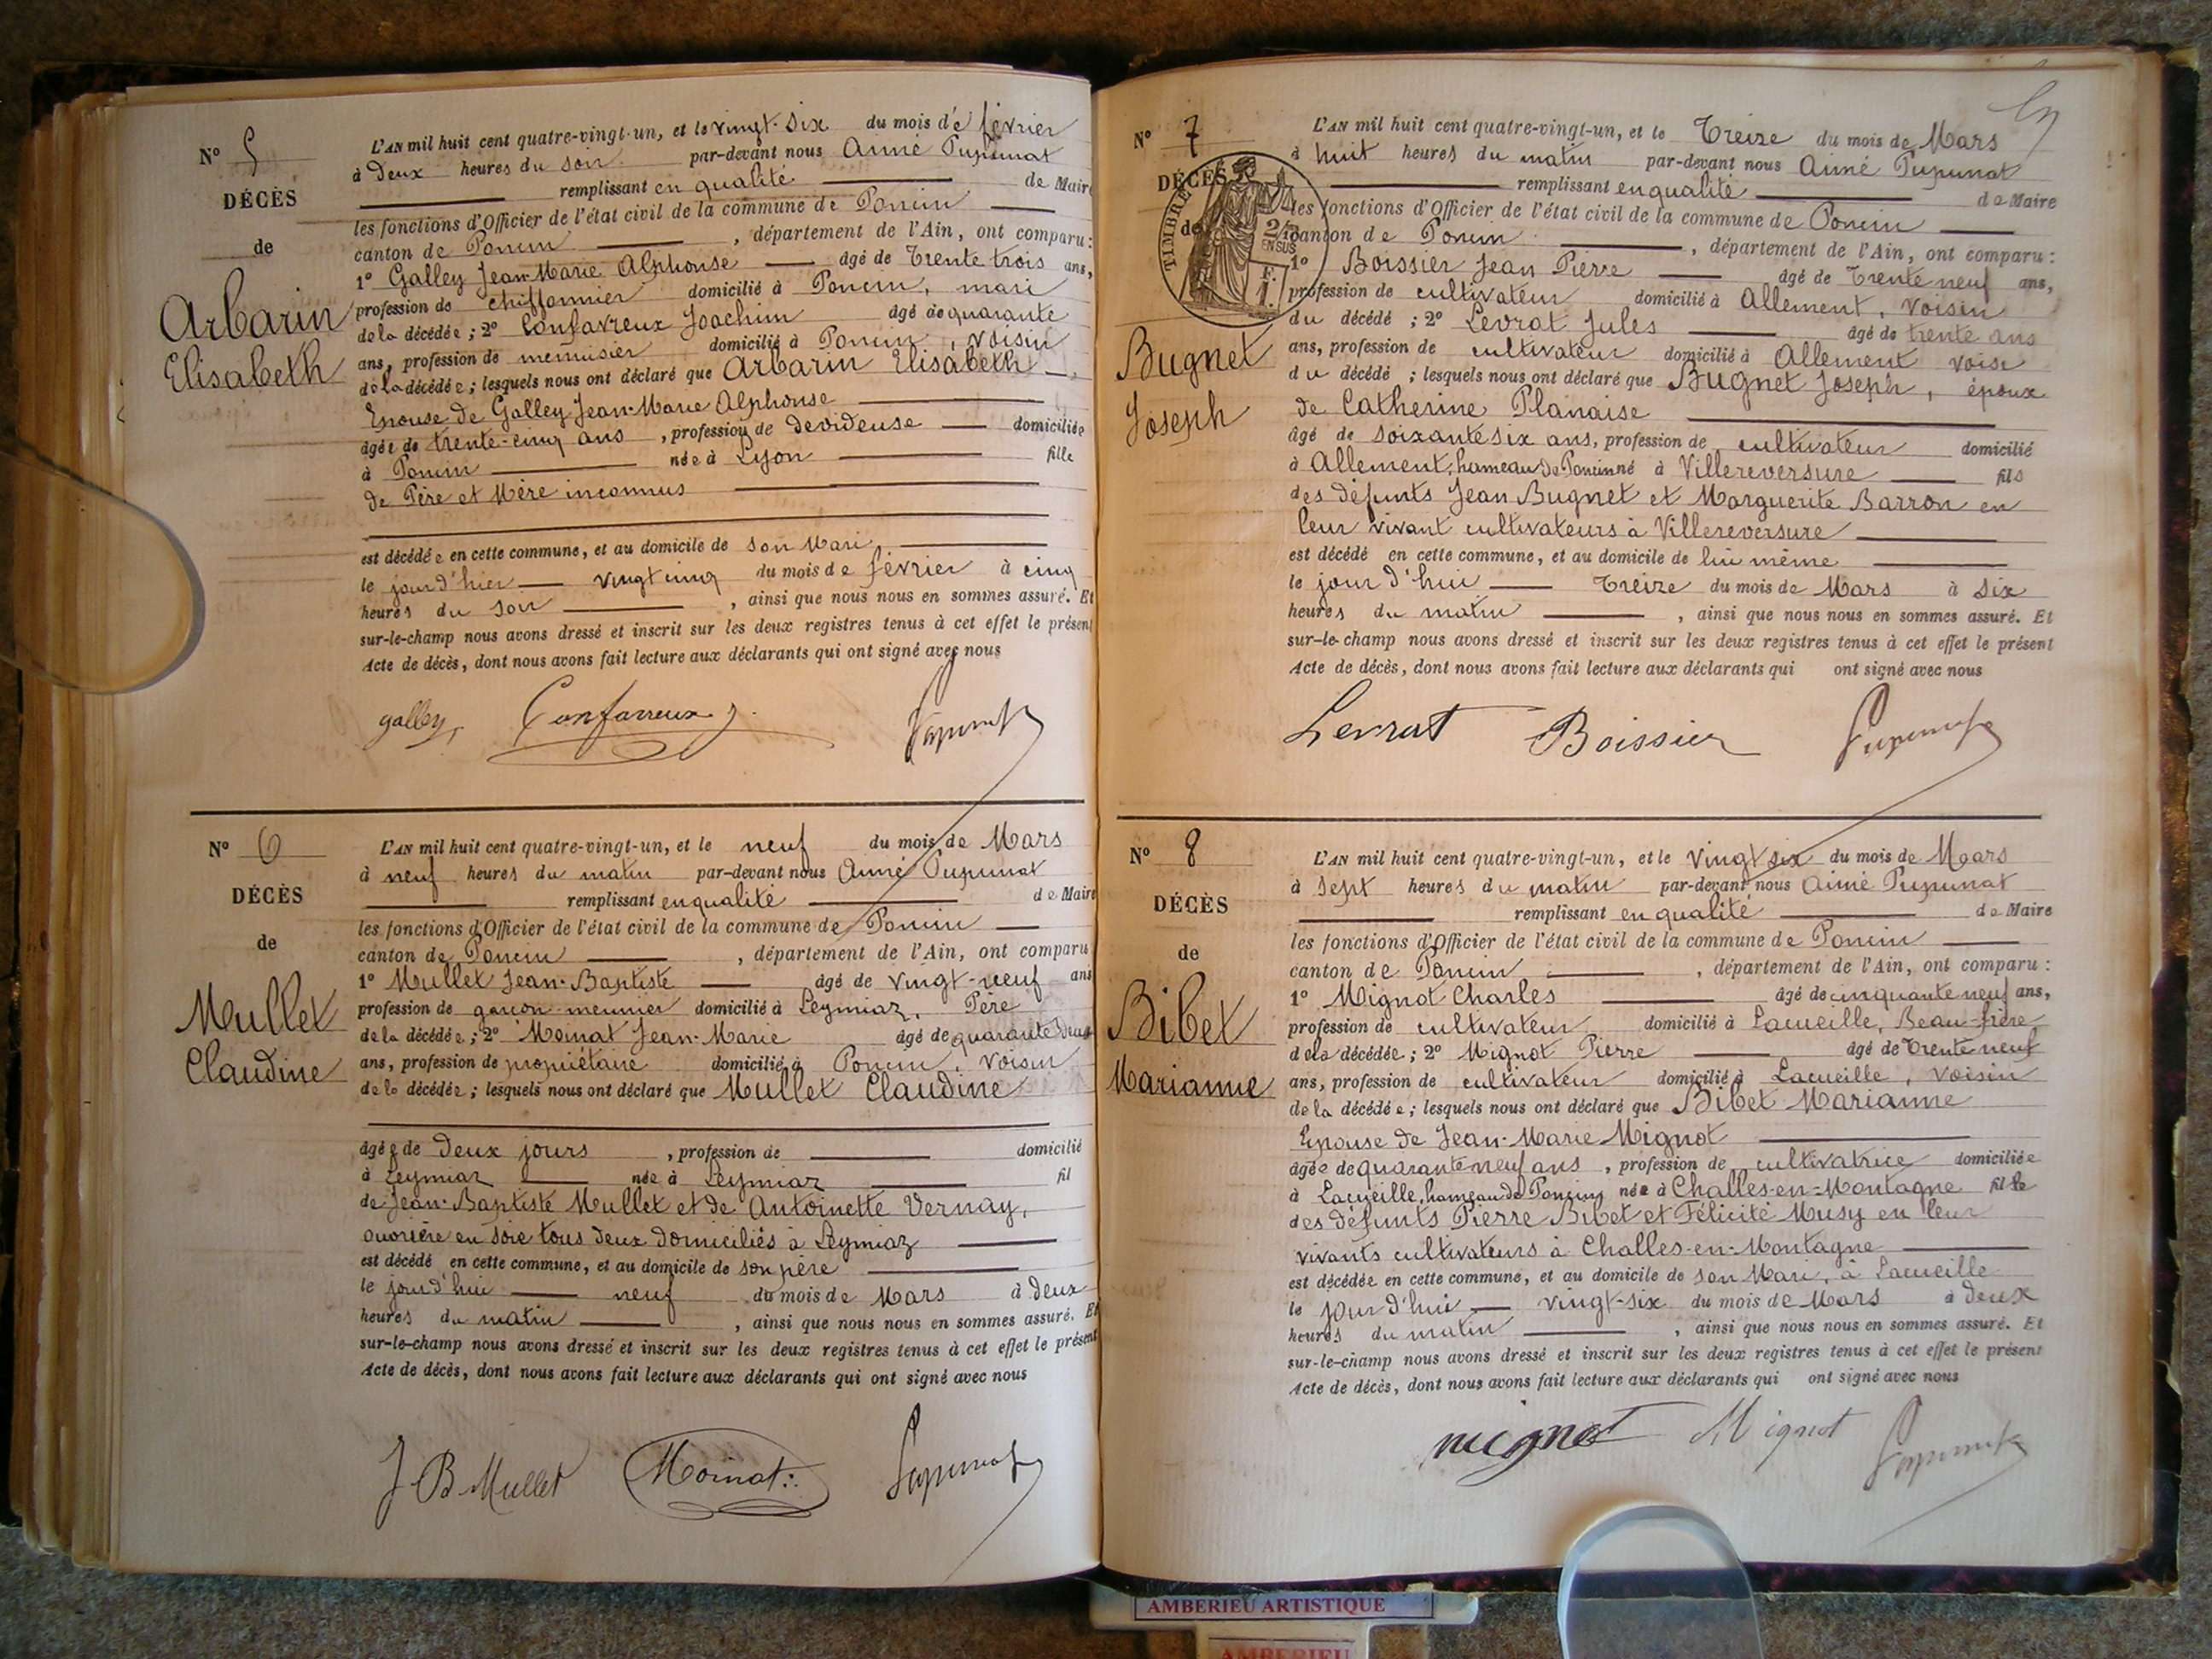 Nº 5
DÉCÈS
de
Arbarin
Elisabeth
L'AN mil huit cent quatre-vingt-un, et le vingt-six du mois de février
à Deux heures du soir par-devant nous Aimé Pupunat
remplissant en qualité de Maire
les fonctions d'Officier de l'état civil de la commune de Poncin
canton de Poncin, département de l'Ain, ont comparu:
1º Galley Jean-Marie Alphonse âgé de Trente trois ans,
profession de chiffonnier domicilié à Poncin, mari
de la décédée; 2º Confavreux Joachim âgé de quarante
ans, profession de menuisier domicilié à Poncin, voisin
de la décédée; lesquels nous ont déclaré que Arbarin Elisabeth
Epouse de Galley Jean-Marie Alphonse
âgée de trente-cinq ans, profession de devideuse domiciliée
à Poncin née à Lyon fille
de Père et Mère inconnus
est décédée en cette commune, et au domicile de son Mari,
le jour d'hier vingt cinq du mois de février à cinq
heures du soir, ainsi que nous nous en sommes assuré. Et
sur-le-champ nous avons dressé et inscrit sur les deux registres tenus à cet effet le présent
Acte de décès, dont nous avons fait lecture aux déclarants qui ont signé avec nous
galley Confavreux J. Pupunat
Nº 6
DÉCÈS
de
Mullet
Claudine
L'AN mil huit cent quatre-vingt-un, et le neuf du mois de Mars
à neuf heures du matin par-devant nous Aimé Pupunat
remplissant en qualité de Maire
les fonctions d'Officier de l'état civil de la commune de Poncin
canton de Poncin, département de l'Ain, ont comparu
1º Mullet Jean-Baptiste âgé de vingt-neuf ans
profession de garçon-meunier domicilié à Leymiaz, Père
de la décédée; 2º Moinat Jean-Marie âgé de quarante Deux
ans, profession de propriétaire domicilié à Poncin, voisin
de la décédée; lesquels nous ont déclaré que Mullet Claudine
âgée de Deux jours, profession de domicilié
à Leymiaz née à Leymiaz fil
de Jean-Baptiste Mullet et de Antoinette Vernay,
ouvrière en soie tous deux domiciliés à Leymiaz
est décédé en cette commune, et au domicile de son père
le jour d'hui neuf du mois de Mars à Deux
heures du matin, ainsi que nous nous en sommes assuré. Et
sur-le-champ nous avons dressé et inscrit sur les deux registres tenus à cet effet le présent
Acte de décès, dont nous avons fait lecture aux déclarants qui ont signé avec nous
J B Mullet Moinat Pupunat
Nº 7
DÉCÈS
de
TIMBRE
2/10
EN SUS
F.
1.
Bugnet
Joseph
L'AN mil huit cent quatre-vingt-un, et le Treize du mois de Mars
à huit heures du matin par-devant nous Aimé Pupunat
remplissant en qualité de Maire
les fonctions d'Officier de l'état civil de la commune de Poncin
canton de Poncin, département de l'Ain, ont comparu:
1º Boissier Jean Pierre âgé de Trente neuf ans,
profession de cultivateur domicilié à Allement, voisin
du décédé; 2º Levrat Jules âgé de trente ans
ans, profession de cultivateur domicilié à Allement voisi
du décédé; lesquels nous ont déclaré que Bugnet Joseph, époux
de Catherine Planaise
âgé de soixante six ans, profession de cultivateur domicilié
à Allement, hameau de Poncin né à Villereversure fils
des défunts Jean Bugnet et Marguerite Barron en
leur vivant cultivateurs à Villereversure
est décédé en cette commune, et au domicile de lui même
le jour d'hui Treize du mois de Mars à six
heures du matin, ainsi que nous nous en sommes assuré. Et
sur-le-champ nous avons dressé et inscrit sur les deux registres tenus à cet effet le présent
Acte de décès, dont nous avons fait lecture aux déclarants qui ont signé avec nous
Levrat Boissier Pupunat
Nº 8
DÉCÈS
de
Bibet
Marianne
L'AN mil huit cent quatre-vingt-un, et le Vingt six du mois de Mars
à sept heures du matin par-devant nous Aimé Pupunat
remplissant en qualité de Maire
les fonctions d'Officier de l'état civil de la commune de Poncin
canton de Poncin, département de l'Ain, ont comparu:
1º Mignot Charles âgé de cinquante neuf ans,
profession de cultivateur domicilié à Lacueille, Beau-frère
de la décédée; 2º Mignot Pierre âgé de Trente neuf
ans, profession de cultivateur domicilié à Lacueille, voisin
de la décédée; lesquels nous ont déclaré que Bibet Marianne
Epouse de Jean-Marie Mignot
âgée de quarante neuf ans, profession de cultivatrice domiciliée
à Lacueille, hameau de Poncin, née à Challes-en-Montagne fille
des défunts Pierre Bibet et Félicité Musy en leur
vivants cultivateurs à Challes-en-Montagne
est décédée en cette commune, et au domicile de son Mari, à Lacueille
le jour d'hui vingt-six du mois de Mars à deux
heures du matin, ainsi que nous nous en sommes assuré. Et
sur-le-champ nous avons dressé et inscrit sur les deux registres tenus à cet effet le présent
Acte de décès, dont nous avons fait lecture aux déclarants qui ont signé avec nous
mignot Mignot Pupunat
AMBERIEU ARTISTIQUE
AMBERIEU